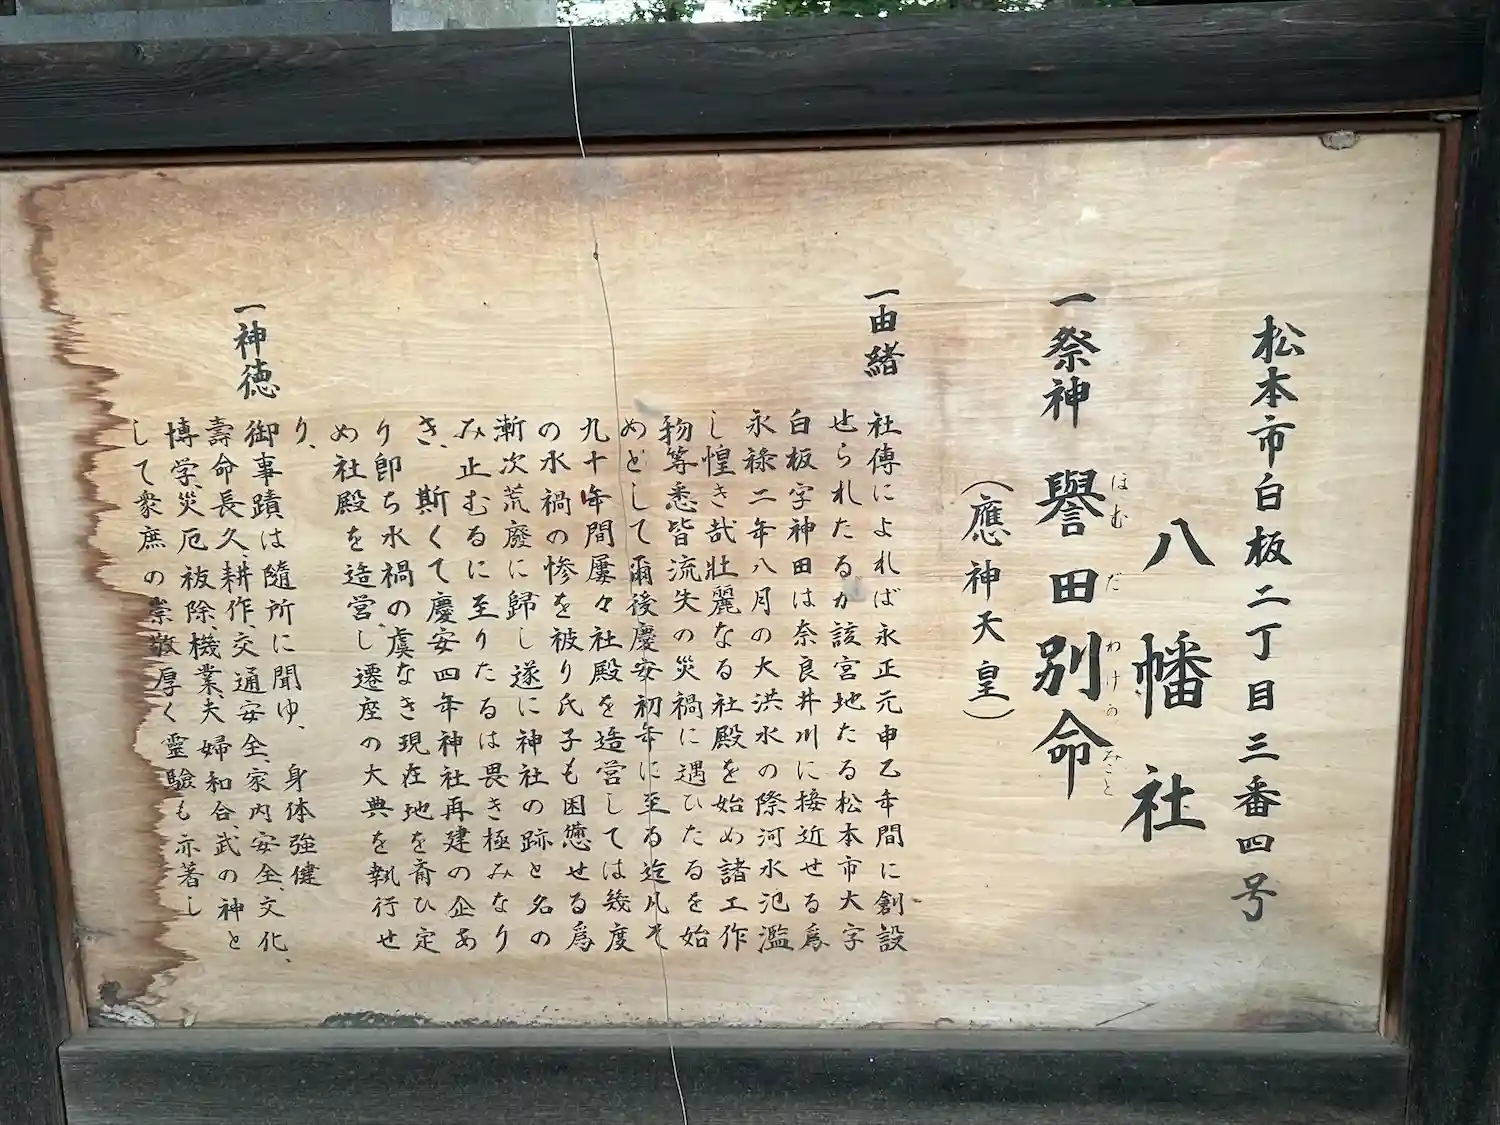 松本市白板二丁目三番四号
八幡社
一祭神 譽田別命
ほむ だ わけの みこと
(應神天皇)
一由緒
社傳によれば永正元申乙年間に創設
せられたるが該宮地たる松本市大字
白板字神田は奈良井川に接近せる爲
永祿二年八月の大洪水の際河水氾濫
し惶き哉壯麗なる社殿を始め諸工作
物等悉皆流失の災禍に遇ひたるを始
めとして爾後慶安初年に至る迄凡そ
九十年間屢々社殿を造営しては幾度
の水禍の惨を被り氏子も困憊せる爲
漸次荒廢に歸し遂に神社の跡と名の
み止むるに至りたるは畏き極みなり
き、斯くて慶安四年神社再建の企あ
り郎ち水禍の虞なき現在地を斎ひ定
め社殿を造営し遷座の大典を執行せ
り、
一神徳
御事蹟は隨所に聞ゆ、身体強健
壽命長久、耕作、交通安全、家内安全、文化、
博学、災厄祓除、機業、夫婦和合、武の神と
して衆庶の崇敬厚く靈驗も亦著し